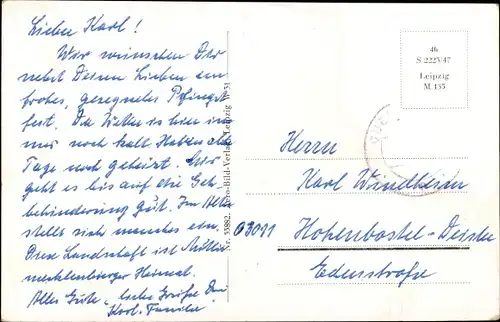 Lieber Karl!
Wir wünschen Dir
nebst Deinen Lieben ein
frohes, gesegnetes Pfingst
fest. Da
nur noch kalt. Haben alle
Tage noch geheizt. Mir
geht es bis auf die Geh-
behinderung gut. Im Alter
stellt sich manches ein.
Diese Landschaft ist Mitten
mecklenburger Heimat.
Alles Gute, Grüße Dein
Karl. Familie
Nr. 55882. -Bild-Verlag, Leipzig W 31
46
S 2225/47
Leipzig
M 135
Herrn
Karl Windheim
03091 Hohenbostel-Deister
Edenstraße